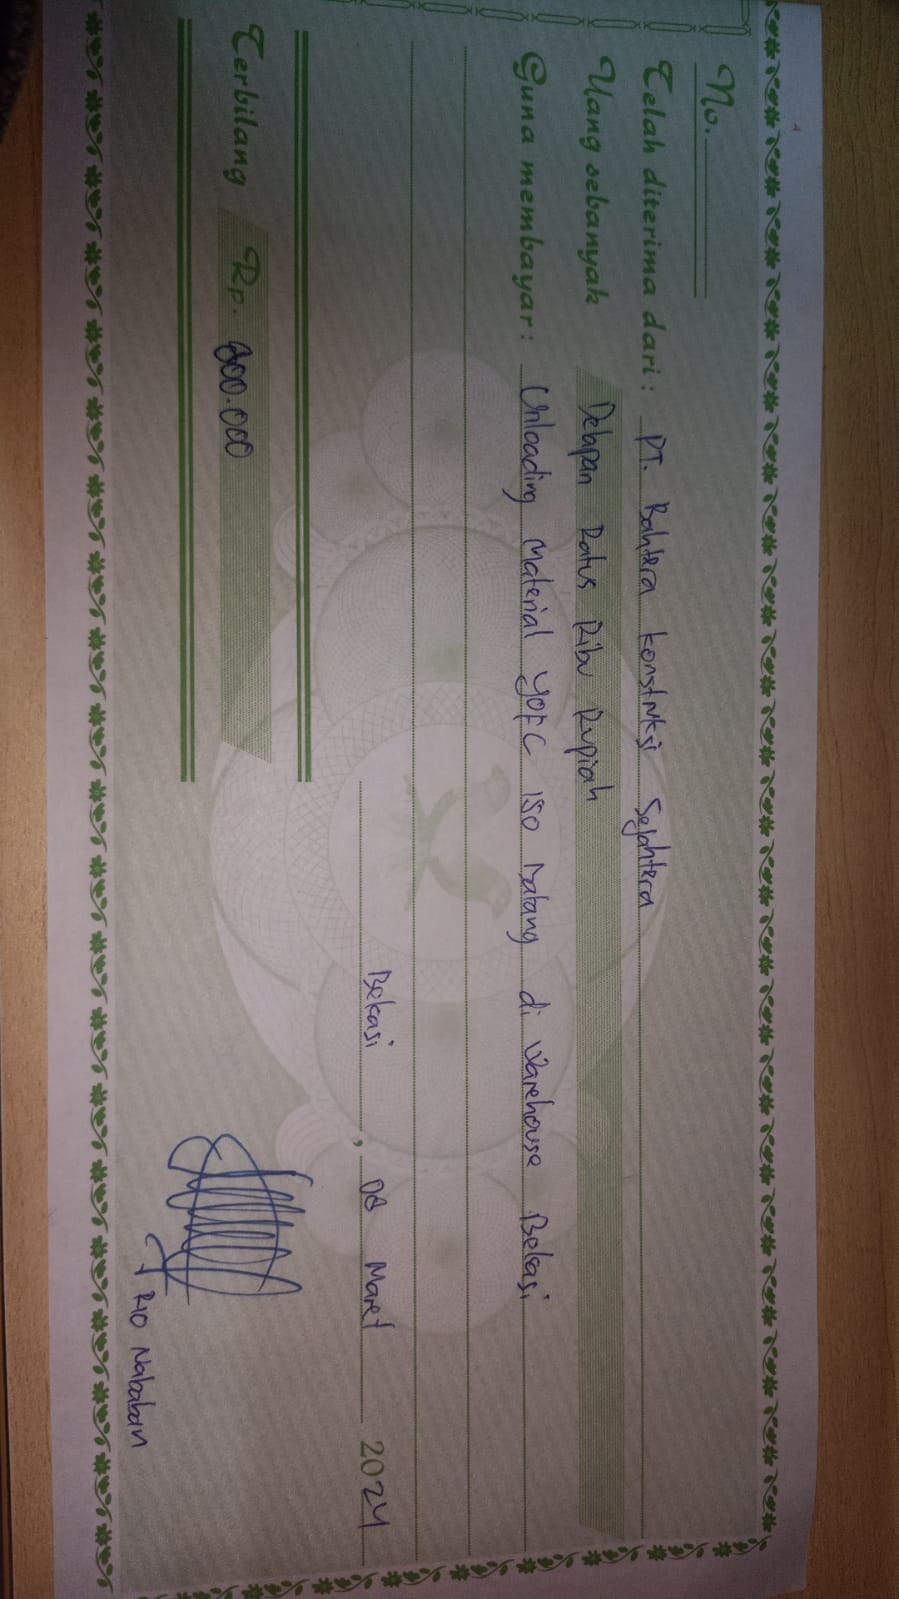 No.
Telah diterima dari : PT. Bahtera Konstruksi Sejahtera
Uang sebanyak Delapan Ratus Ribu Rupiah
Guna membayar : Unloading Material YOFC 150 Batang di Warehouse Bekasi
Bekasi , 08 Maret 2024
Terbilang Rp. 800.000
Rio Nababan